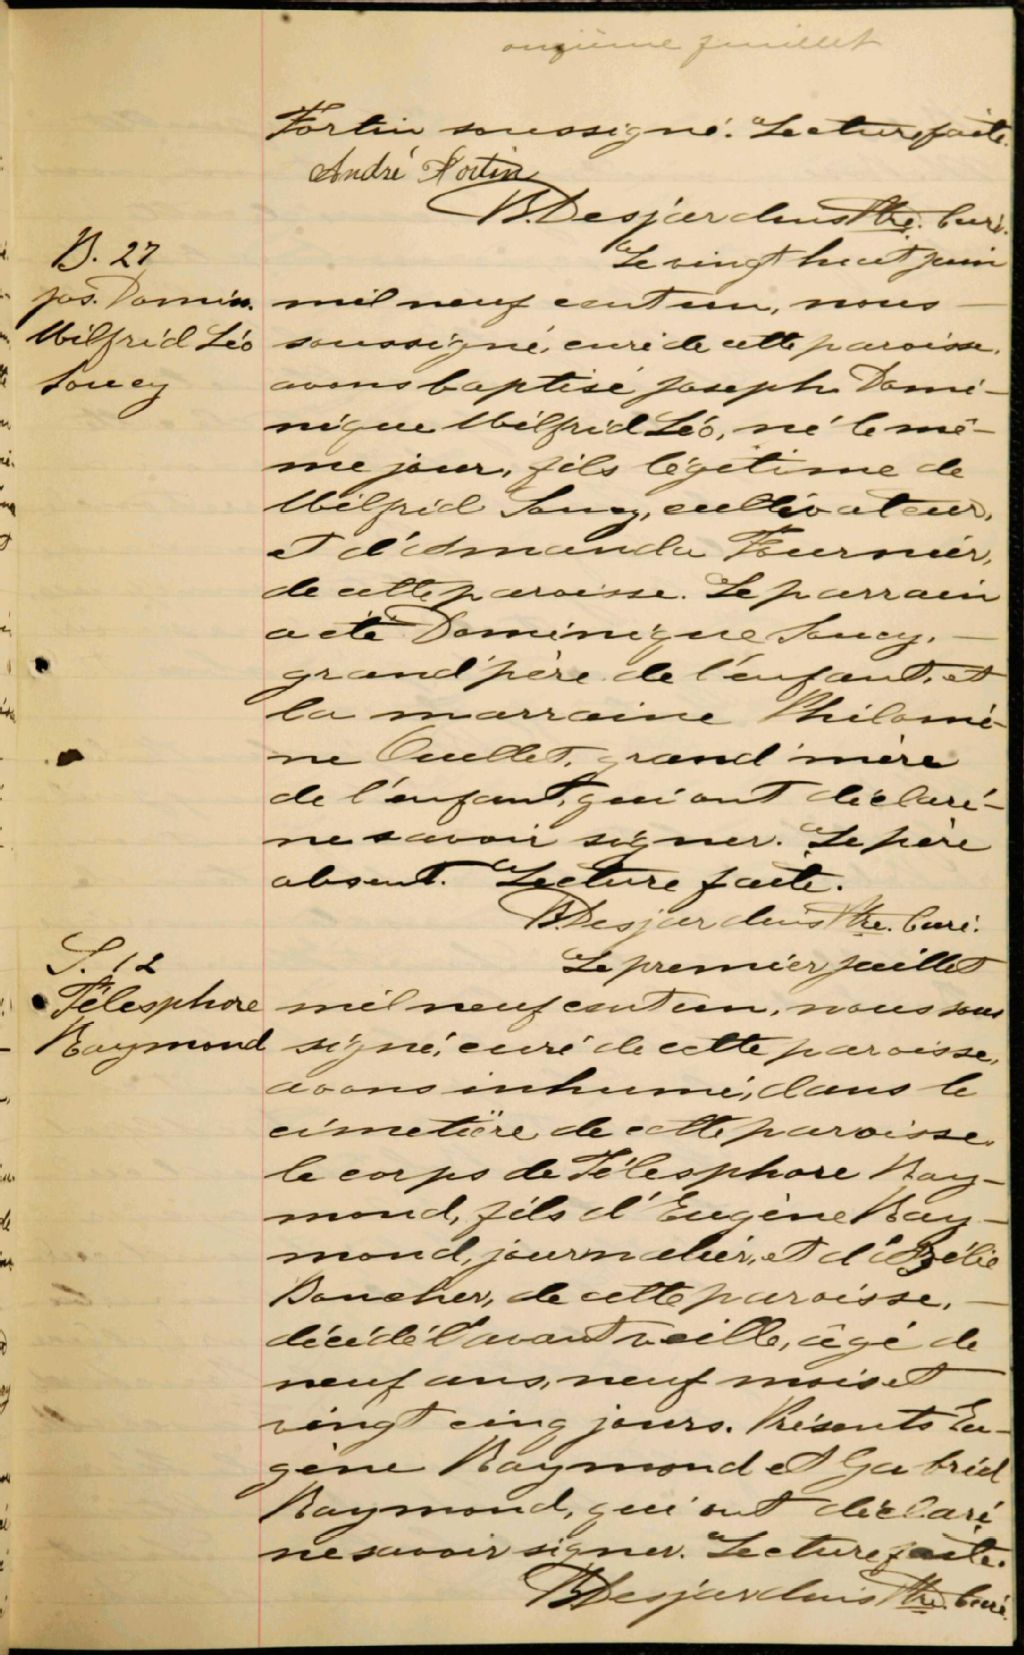 onzième feuillet
Fortin soussigné. Lecture faite.
André Fortin
B. Desjardins Ptre. Curé.
B. 27
Jos. Domin.
Wilfrid Léo
Soucy
Le vingt huit juin
mil neuf cent un, nous
soussigné, curé de cette paroisse,
avons baptisé Joseph Domi-
nique Wilfrid Léo, né le mê-
me jour, fils légitime de
Wilfrid Soucy, cultivateur,
et d'Amanda Fournier,
de cette paroisse. Le parrain
a été Dominique Soucy,
grand'père de l'enfant, et
la marraine Philomè-
ne Ouellet, grand'mère
de l'enfant, qui ont déclaré
ne savoir signer. Le père
absent. Lecture faite.
B. Desjardins Ptre. Curé.
S. 12
Télesphore
Raymond
Le premier juillet
mil neuf cent un, nous sous
signé, curé de cette paroisse,
avons inhumé, dans le
cimetière de cette paroisse,
le corps de Télesphore Ray-
mond, fils d'Eugène Ray-
mond, journalier, et d'Ozélie
Boucher, de cette paroisse,
décédé l'avant veille, âgé de
neuf ans, neuf mois et
vingt cinq jours. Présents Eu-
gène Raymond et Gabriel
Raymond, qui ont déclaré
ne savoir signer. Lecture faite.
B. Desjardins Ptre. Curé.